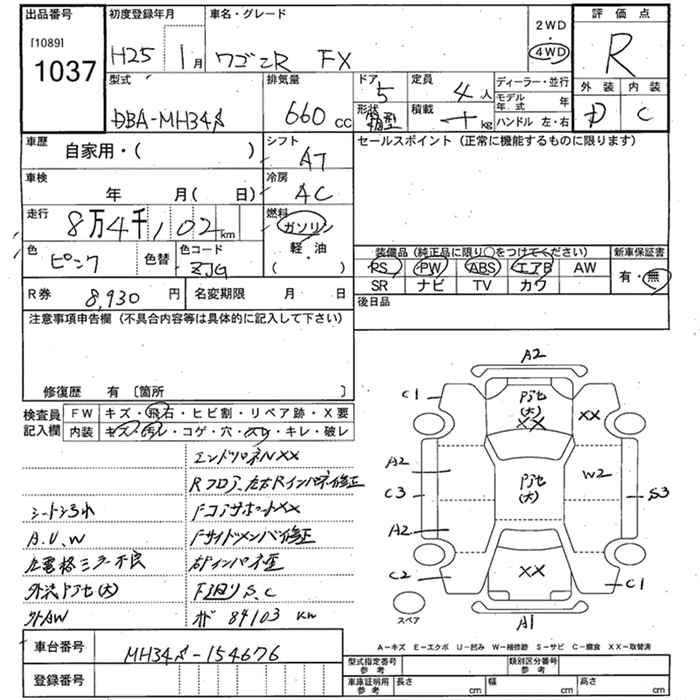 出品番号
[1089]
1037
初度登録年月
H25 1月
車名・グレード
ワゴンR FX
2WD
4WD
評価点
R
外装 内装
D C
型式
DBA-MH34S
排気量
660 cc
ドア
5
形状
箱型
定員
4人
積載
kg
ディーラー・並行
モデル年式 年
ハンドル 左・右
車歴
自家用・( )
シフト
AT
車検
年 月( 日)
冷房
AC
走行
8万4千102km
燃料
ガソリン
軽・油
( )
色
ピンク
色替
色コード
ZJG
R券
8,930円
名変期限 月 日
セールスポイント(正常に機能するものに限ります)
装備品(純正品に限り○をつけてください)
PS PW ABS エアB AW
SR ナビ TV カワ
新車保証書
有・無
後日品
注意事項申告欄(不具合内容等は具体的に記入して下さい)
修復歴 有〔箇所 〕
検査員記入欄
FW キズ・飛石・ヒビ割・リペア跡・X要
内装 キズ・汚レ・コゲ・穴・スレ・キレ・破レ
エンドパネルXX
Rフロア、左右Rインパネ修正
シートシミ汚れ
FコアサポートXX
A.U.W
Fサイドメンバ修正
左電格ミラー不良
外装ハゲ(大)
F下回りS.C
外AW
84103 km
A2
C1
ハゲ(大)
XX
XX
A2
C3
ハゲ(大)
W2
S3
A2
C2
XX
C1
A1
スペア
A-キズ E-エクボ U-凹み W-補修跡 S-サビ C-腐食 XX-取替済
車台番号
MH34S-154676
登録番号
型式指定番号 参考
類別区分番号 参考
車庫証明用 参考
長さ cm 幅 cm 高さ cm